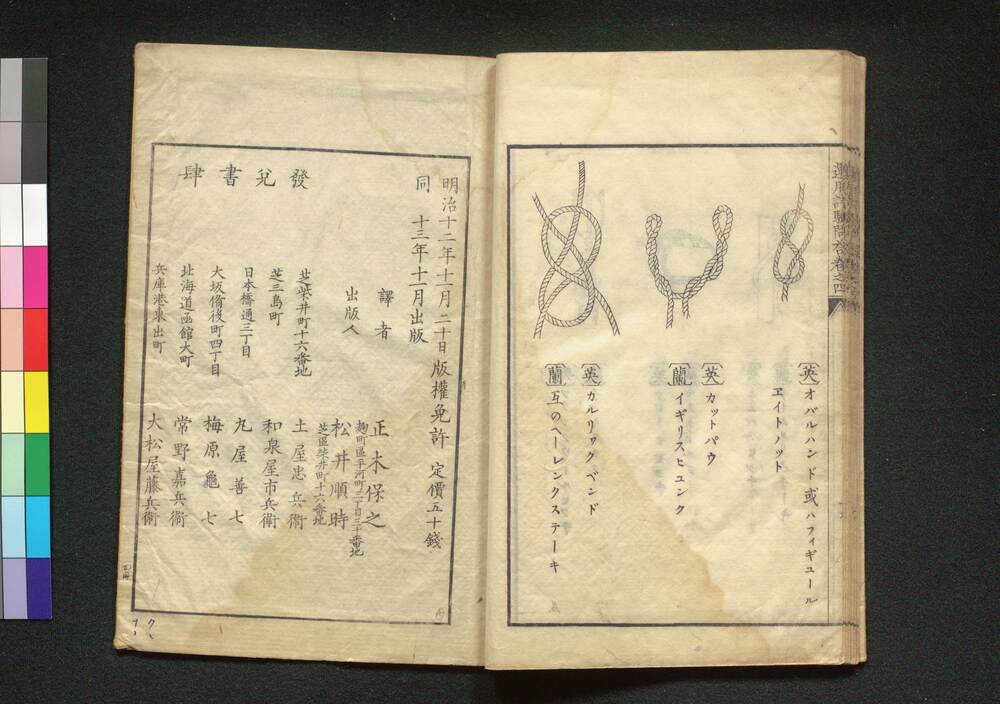 英 オバルハンド或ハフィギュール
ヱイトノット
英 カットパウ
蘭 イギリスヒュンク
英 カルリックベンド
蘭 互のヘーレンクステーキ
明治十二年十一月二十日版權免許 定價五十錢
同 十三年十一月出版
譯者 正木保之
麹町區平河町二丁目三十番地
出版人 松井順時
芝區柴井町十六番地
發兌書肆
芝柴井町十六番地 土屋忠兵衛
芝三島町 和泉屋市兵衛
日本橋通三丁目 丸屋善七
大坂備後町四丁目 梅原龜七
北海道函館大町 常野嘉兵衛
兵庫港東出町 大松屋藤兵衛